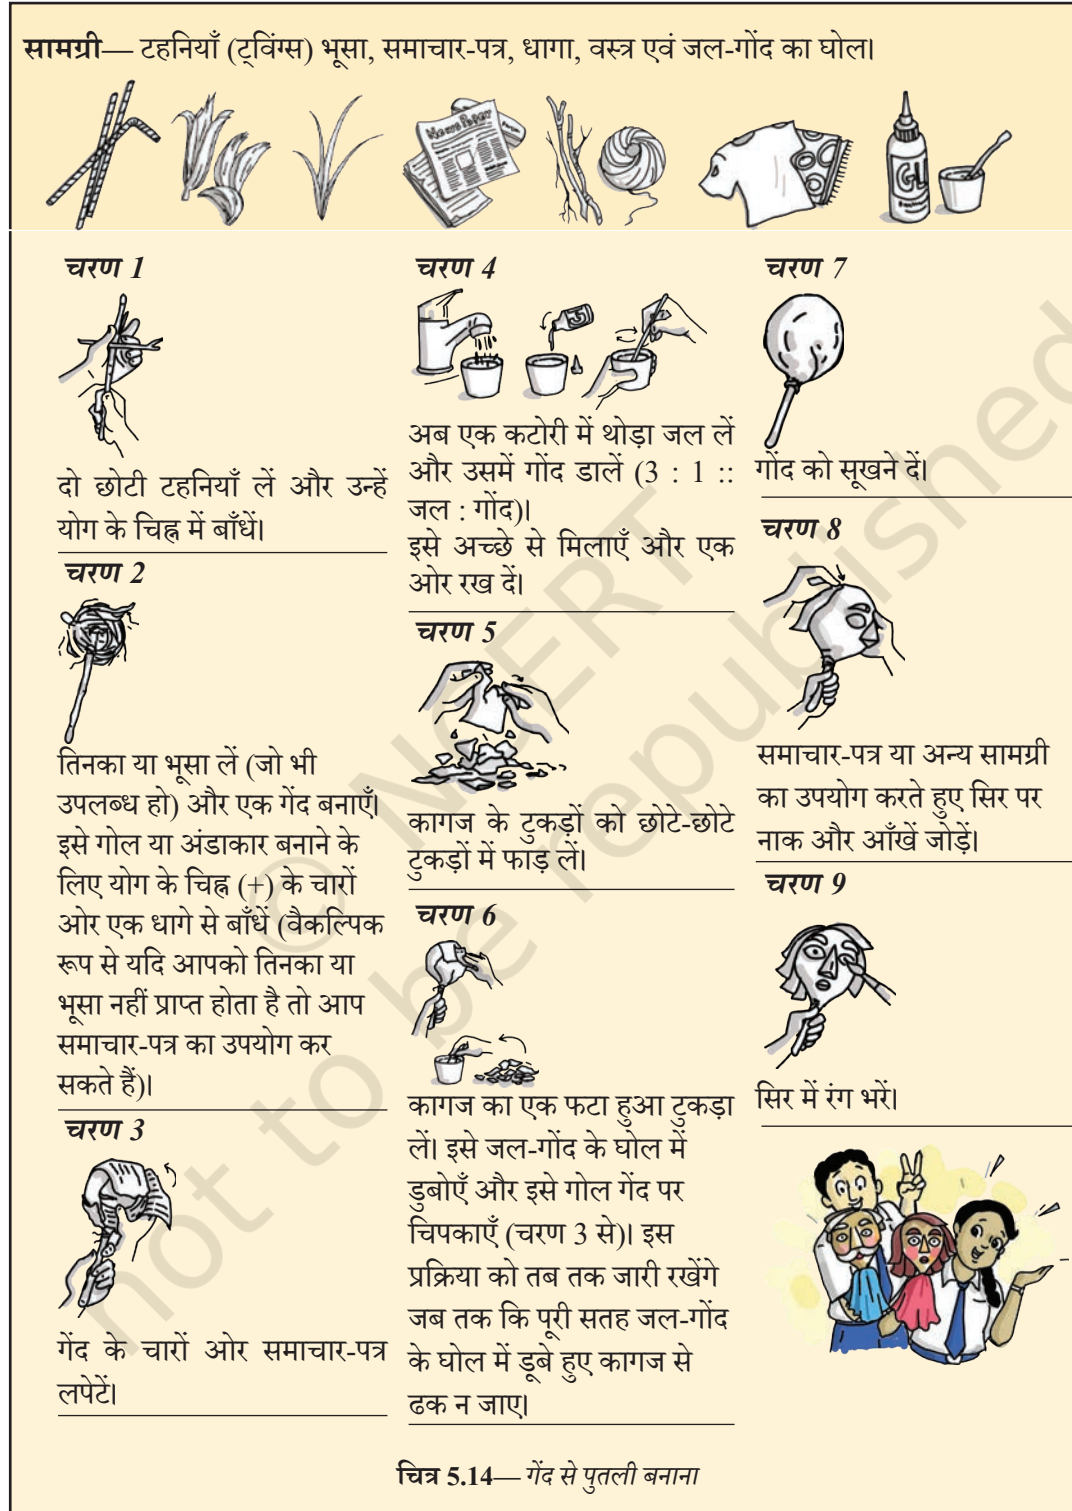 सामग्री— टहनियाँ (ट्विंग्स) भूसा, समाचार-पत्र, धागा, वस्त्र एवं जल-गोंद का घोल।
NewsPaper
GL
चरण 1
दो छोटी टहनियाँ लें और उन्हें
योग के चिह्न में बाँधें।
चरण 2
तिनका या भूसा लें (जो भी
उपलब्ध हो) और एक गेंद बनाएँ।
इसे गोल या अंडाकार बनाने के
लिए योग के चिह्न (+) के चारों
ओर एक धागे से बाँधें (वैकल्पिक
रूप से यदि आपको तिनका या
भूसा नहीं प्राप्त होता है तो आप
समाचार-पत्र का उपयोग कर
सकते हैं)।
चरण 3
गेंद के चारों ओर समाचार-पत्र
लपेटें।
चरण 4
अब एक कटोरी में थोड़ा जल लें
और उसमें गोंद डालें (3 : 1 ::
जल : गोंद)।
इसे अच्छे से मिलाएँ और एक
ओर रख दें।
चरण 5
कागज के टुकड़ों को छोटे-छोटे
टुकड़ों में फाड़ लें।
चरण 6
कागज का एक फटा हुआ टुकड़ा
लें। इसे जल-गोंद के घोल में
डुबोएँ और इसे गोल गेंद पर
चिपकाएँ (चरण 3 से)। इस
प्रक्रिया को तब तक जारी रखेंगे
जब तक कि पूरी सतह जल-गोंद
के घोल में डूबे हुए कागज से
ढक न जाए।
चरण 7
गोंद को सूखने दें।
चरण 8
समाचार-पत्र या अन्य सामग्री
का उपयोग करते हुए सिर पर
नाक और आँखें जोड़ें।
चरण 9
सिर में रंग भरें।
चित्र 5.14— गेंद से पुतली बनाना
© NCERT
not to be republished